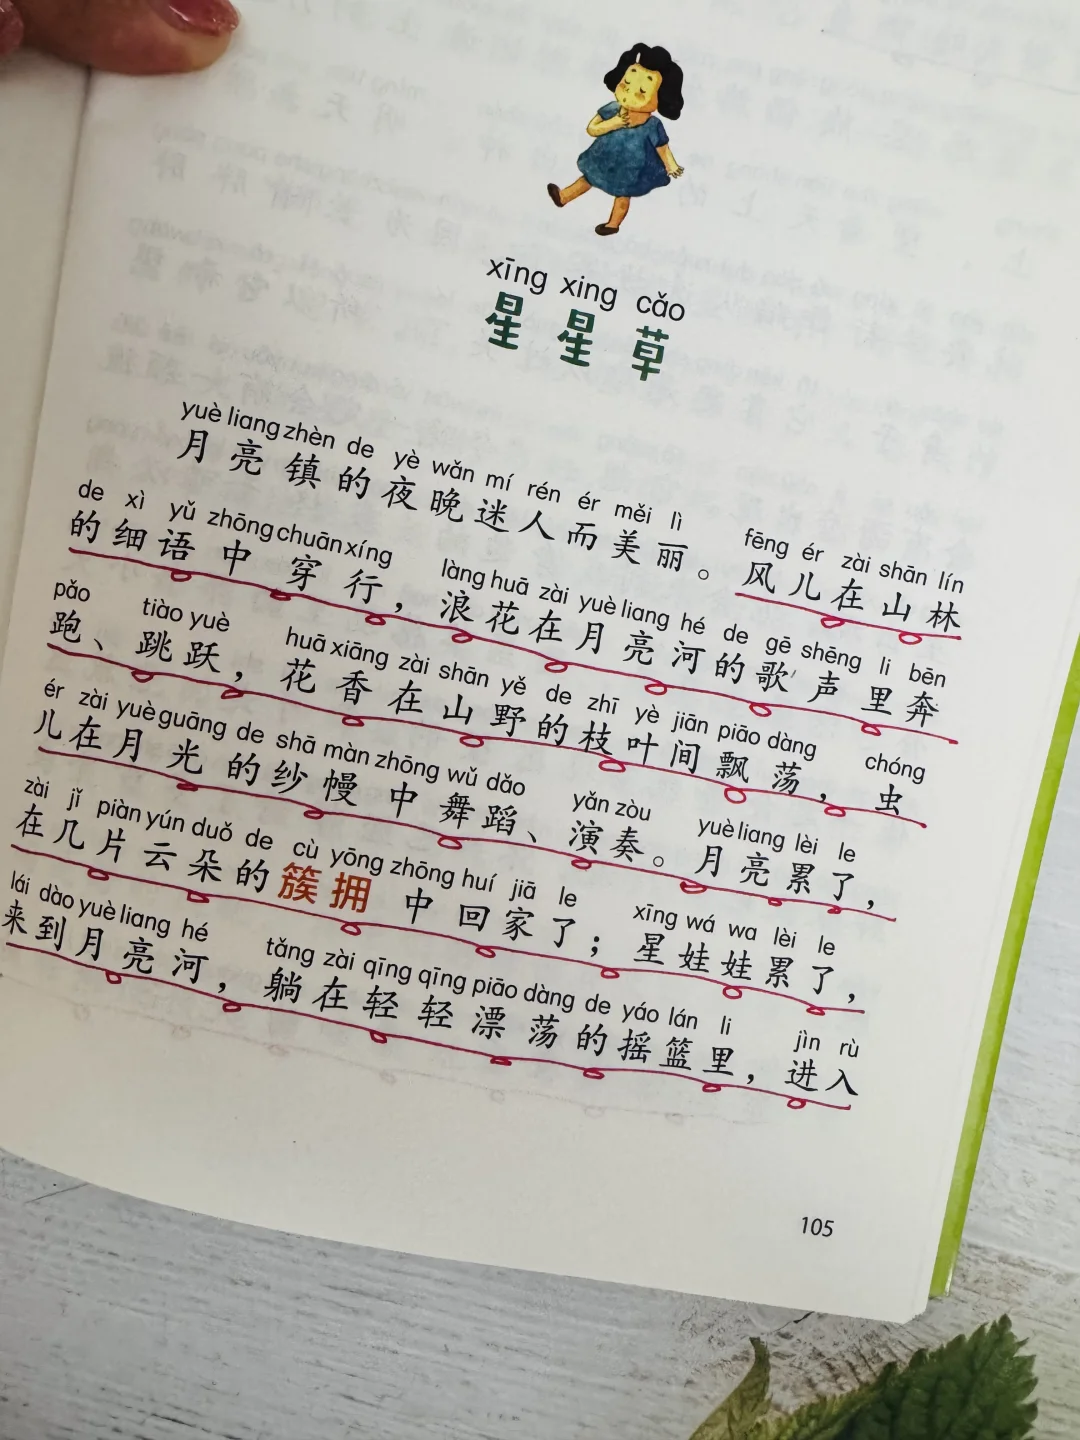 xīng xing cǎo
星星草
yuè liang zhèn de yè wǎn mí rén ér měi lì fēng ér zài shān lín
月亮镇的夜晚迷人而美丽。风儿在山林
de xì yǔ zhōng chuān xíng làng huā zài yuè liang hé de gē shēng li bēn
的细语中穿行，浪花在月亮河的歌声里奔
pǎo tiào yuè huā xiāng zài shān yě de zhī yè jiān piāo dàng chóng
跑、跳跃，花香在山野的枝叶间飘荡，虫
ér zài yuè guāng de shā màn zhōng wǔ dǎo yǎn zòu yuè liang lèi le
儿在月光的纱幔中舞蹈、演奏。月亮累了，
zài jǐ piàn yún duǒ de cù yōng zhōng huí jiā le xīng wá wa lèi le
在几片云朵的簇拥中回家了；星娃娃累了，
lái dào yuè liang hé tǎng zài qīng qīng piāo dàng de yáo lán li jìn rù
来到月亮河，躺在轻轻漂荡的摇篮里，进入
105